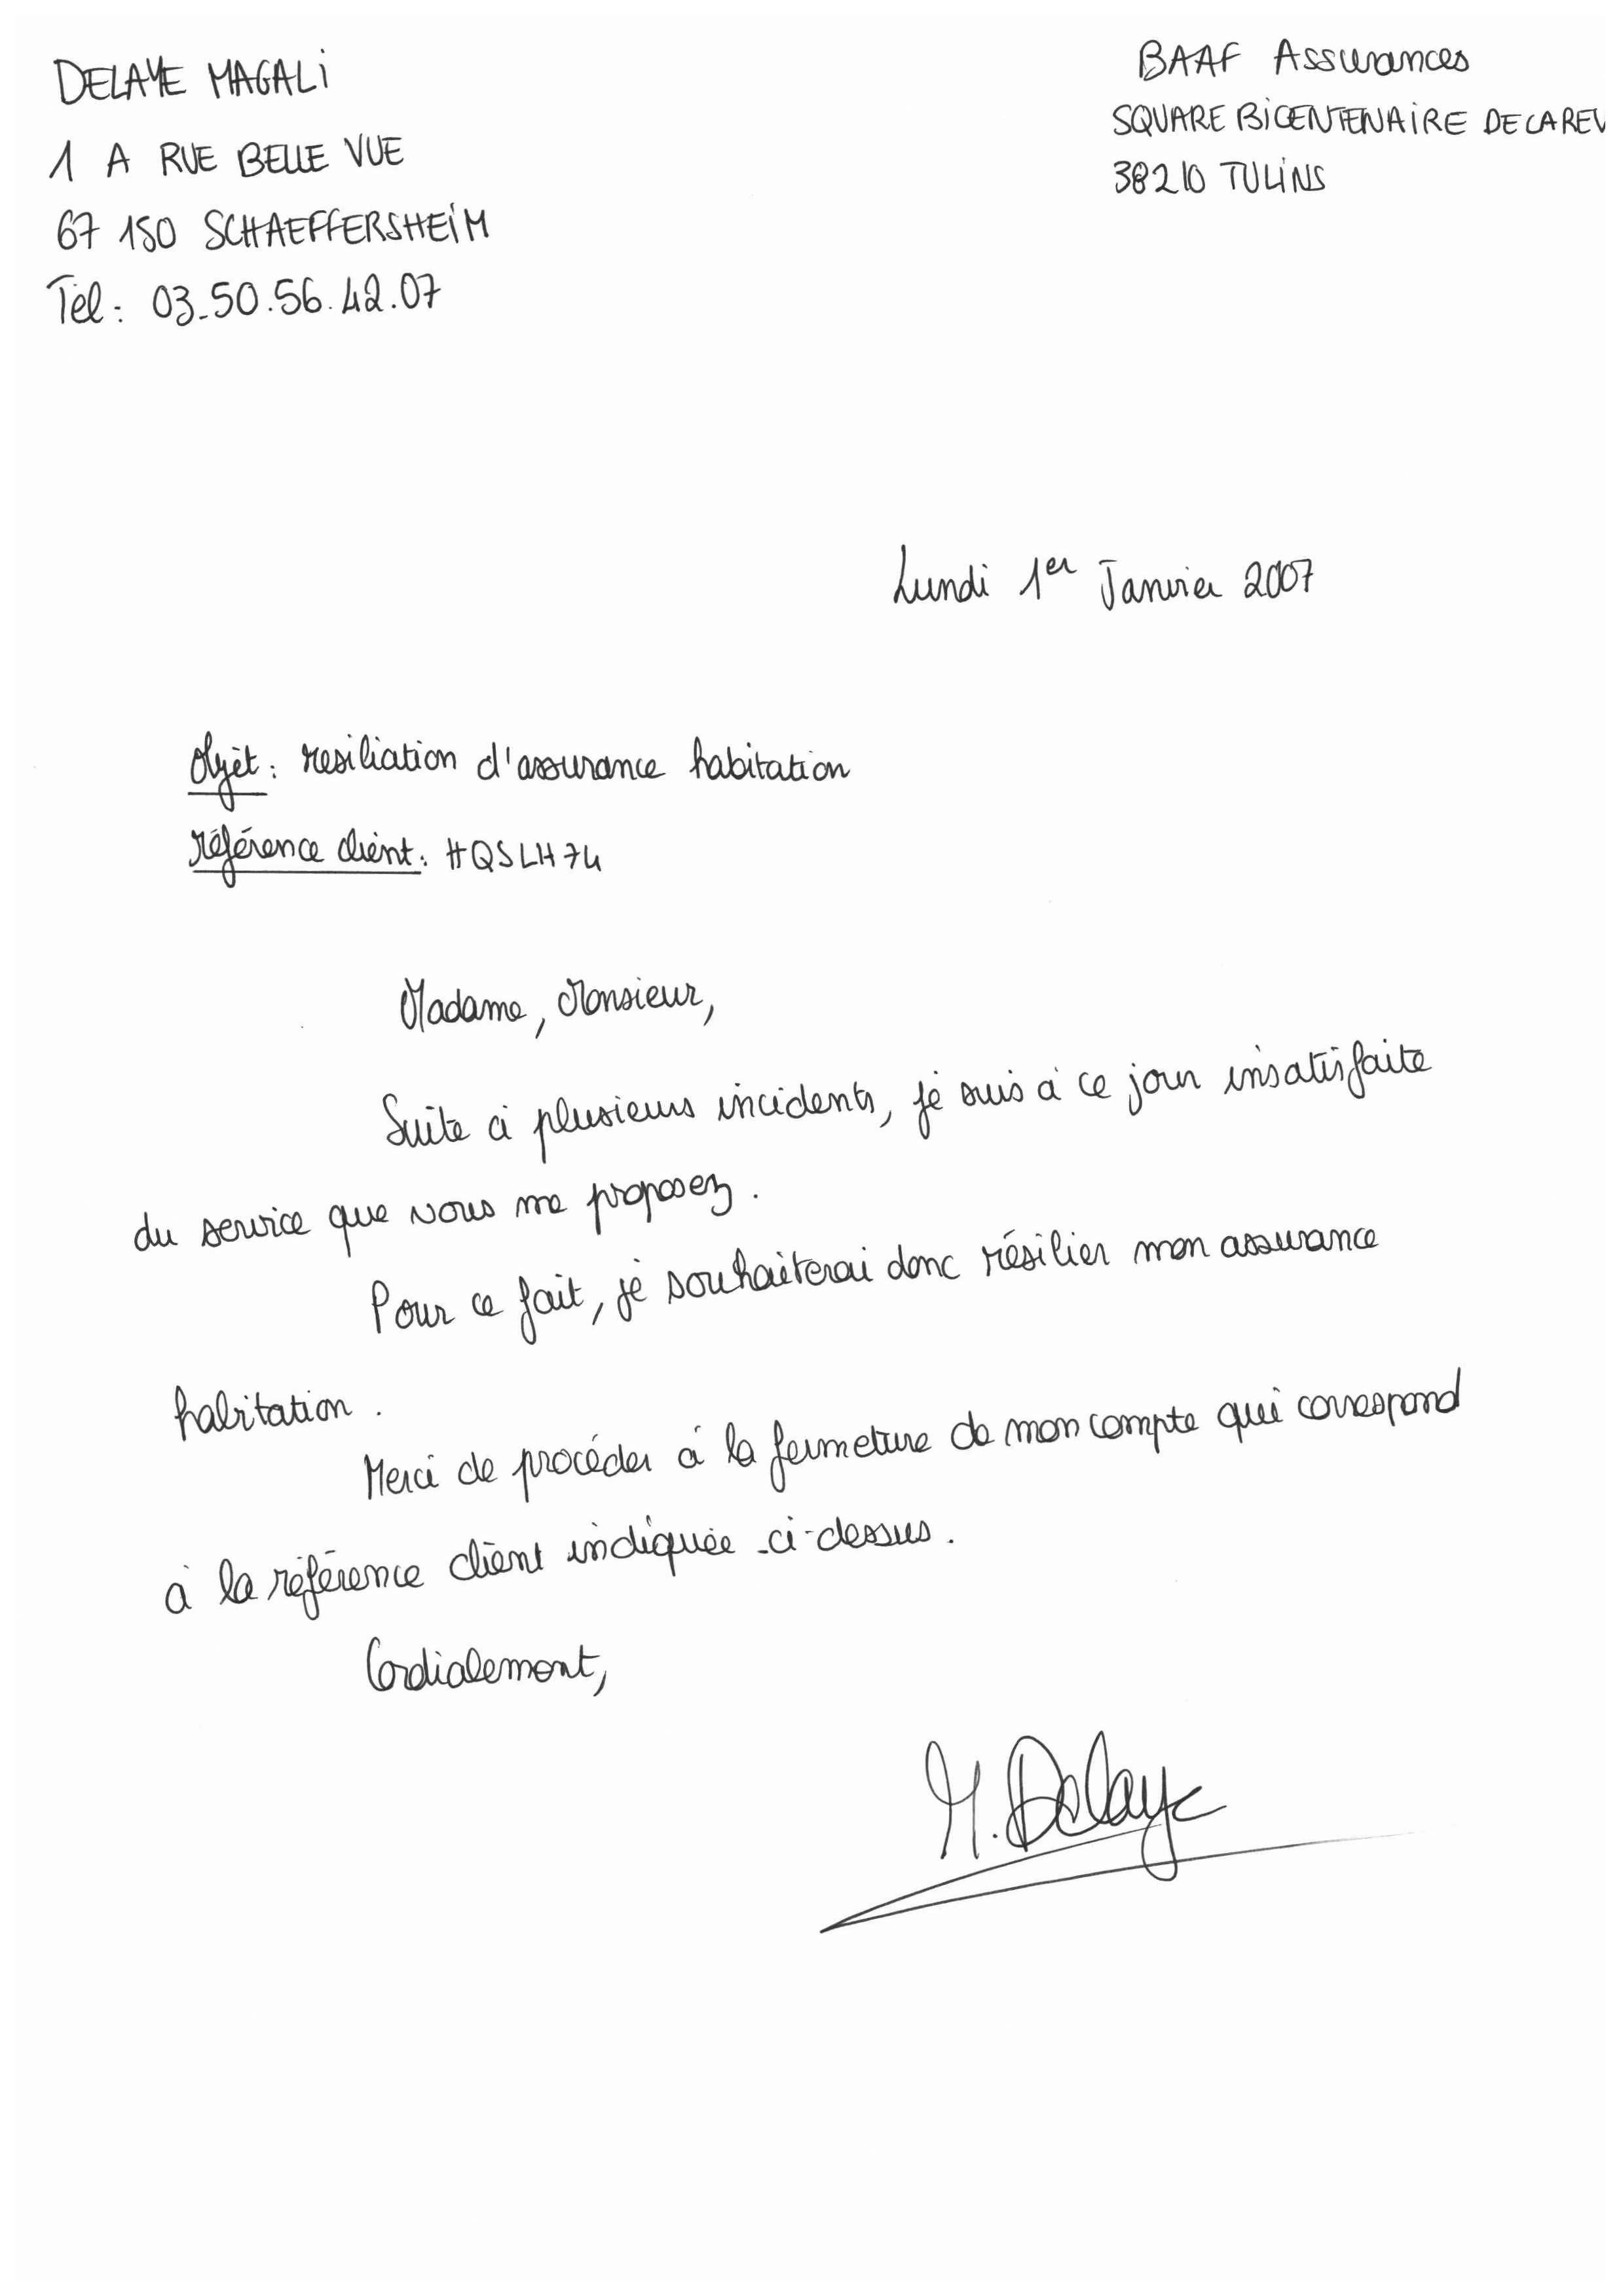 DELAYE MAGALI
1 A RUE BELLE VUE
67 150 SCHAEFFERSHEIM
Tél : 03.50.56.42.07
BAAF Assurances
SQUARE BICENTENAIRE DECAREV
38210 TULINS
Lundi 1er Janvier 2007
Objet : resiliation d'assurance habitation
référence client : HQSLH74
Madame, Monsieur,
Suite à plusieurs incidents, je suis à ce jour insatisfaite
du service que vous me proposez.
Pour ce fait, je souhaiterai donc résilier mon assurance
habitation.
Merci de procéder à la fermeture de mon compte qui correspond
à la référence client indiquée ci-dessus.
Cordialement,
M. Delaye